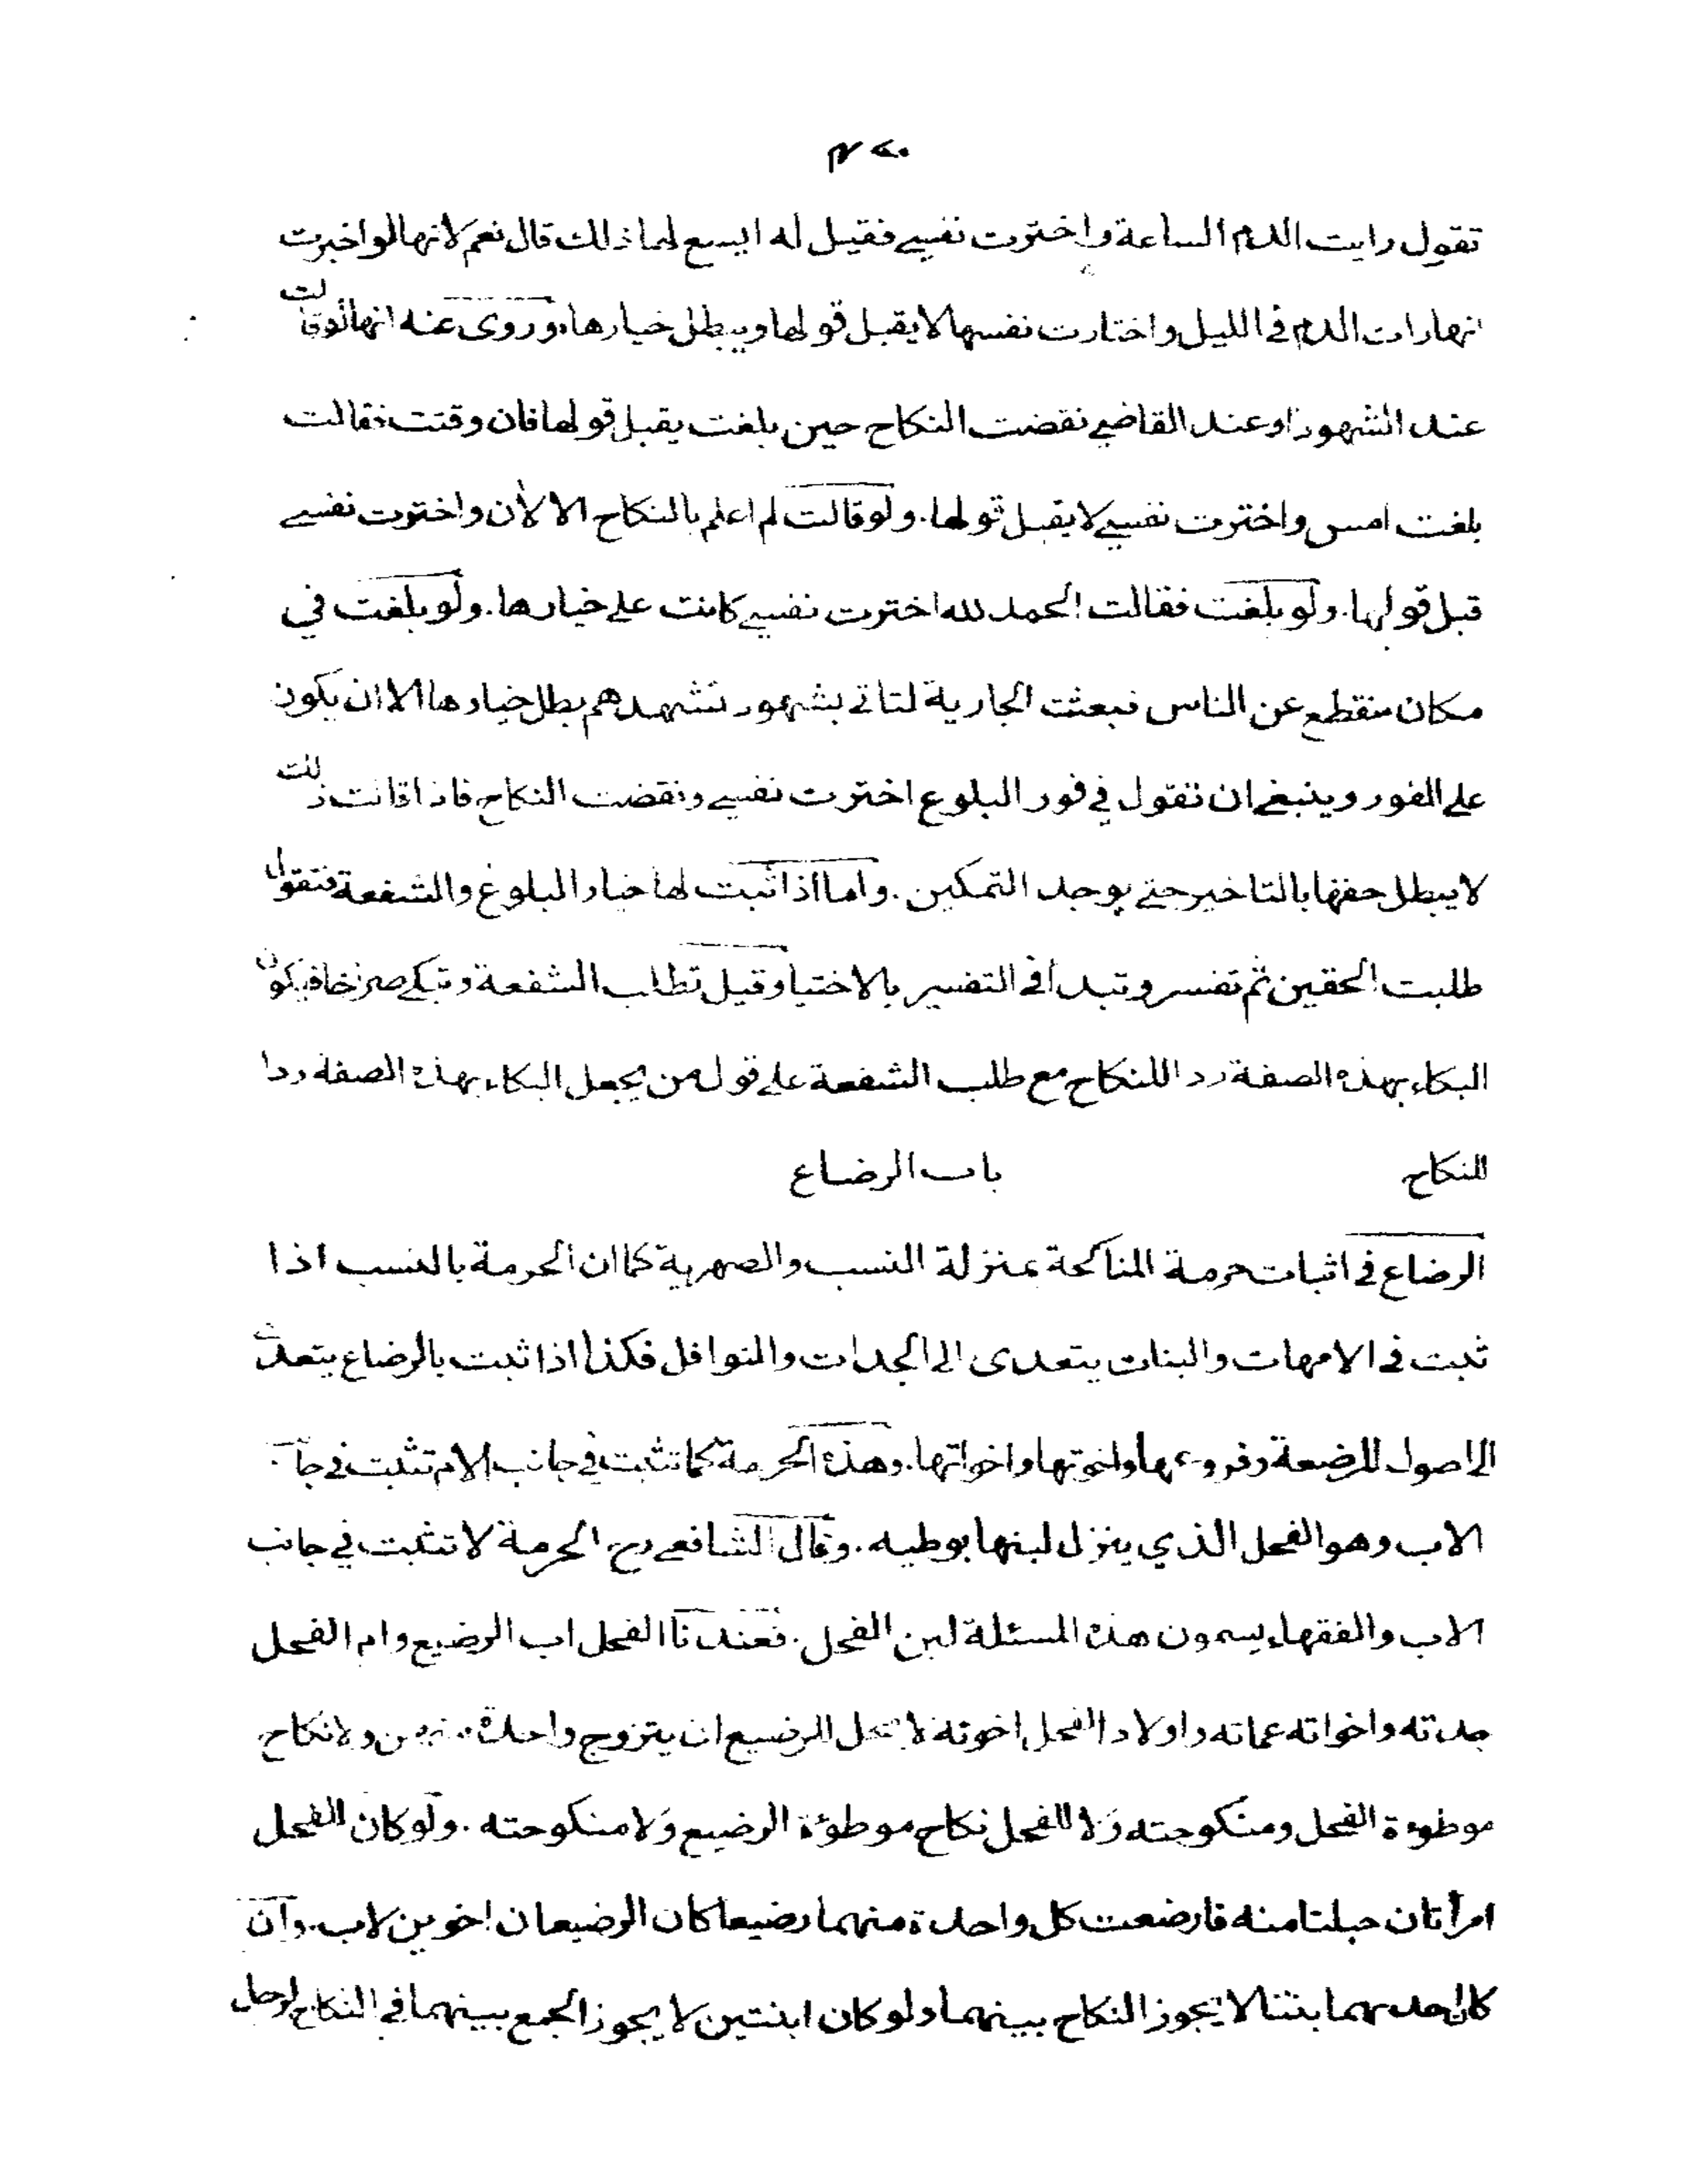 ٤٧٠
تقول رايت الدم الساعة واخترت نفسي فقيل له ايسع لها ذلك قال نعم لانها لو اخبرت
انها رات الدم في الليل واختارت نفسها لا يقبل قولها ويبطل خيارها، وروى عنه انها لو قالت
عند الشهود او عند القاضي نقضت النكاح حين بلغت يقبل قولها فان وقتت فقالت
بلغت امس واخترت نفسي لا يقبل قولها. ولو قالت لم اعلم بالنكاح الا الآن واخترت نفسي
قبل قولها. ولو بلغت فقالت الحمد لله اخترت نفسي كانت على خيارها. ولو بلغت في
مكان منقطع عن الناس فبعثت الجارية لتاتي بشهود تشهدهم بطل خيارها الا ان يكون
على الفور وينبغي ان تقول في فور البلوع اخترت نفسي ونقضت النكاح فاذا قالت ذلك
لا يبطل حقها بالتاخير حتى يوجد التمكين. واما اذا ثبت لها خيار البلوغ والشفعة فتقول
طلبت الحقين ثم تفسر وتبدأ في التفسير بالاختيار وقيل تطلب الشفعة وتبكي صراخا فيكون
البكاء بهذه الصفة ردا للنكاح مع طلب الشفعة على قول من يجعل البكاء بهذه الصفة ردا
للنكاح باب الرضاع
الرضاع في اثبات حرمة المناكحة بمنزلة النسب والصهرية كما ان الحرمة بالنسب اذا
ثبت في الامهات والبنات يتعدى الى الجدات والنوافل فكذا اذا ثبت بالرضاع يتعدى
الى اصول المرضعة وفروعها واخوتها واخواتها. وهذه الحرمة كما تثبت في جانب الام تثبت في جانب
الاب وهو الفحل الذي ينزل لبنها بوطيه. وقال الشافعي رح الحرمة لا تثبت في جانب
الاب والفقهاء يسمون هذه المسئلة لبن الفحل. فعندنا الفحل اب الرضيع وام الفحل
جدته واخواته عماته واولاد الفحل اخوته لا يحل للرضيع ان يتزوج واحدة منهن ولا نكاح
موطوءة الفحل ومنكوحته ولا للفحل نكاح موطوءة الرضيع ولا منكوحته. ولو كان للفحل
امرأتان حبلتا منه فارضعت كل واحدة منهما رضيعا كان الرضيعان اخوين لاب. وان
كان احدهما بنتا لا يجوز النكاح بينهما ولو كان ابنتين لا يجوز الجمع بينهما في النكاح لرجل